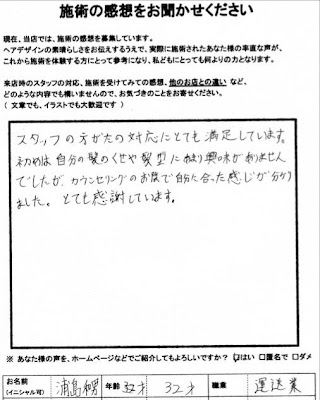 施術の感想をお聞かせください
現在、当店では、施術の感想を募集しています。
ヘアデザインの素晴らしさをお伝えするうえで、実際に施術されたあなた様の率直な声が、
これから施術を体験する方にとって参考になり、私どもにとっても何よりの力となります。
来店時のスタッフの対応、施術を受けてみての感想、他のお店との違い など、
どのような内容でも構いませんので、お気づきのことをお寄せください。
( 文章でも、イラストでも大歓迎です )
スタッフの方がたの対応にとても満足しています。
初めは自分の髪のくせや髪型にあまり興味がありません
でしたが、カウンセリングのお陰で自分に合った感じが分かり
ました。とても感謝しています。
※ あなた様の声を、ホームページなどでご紹介してもよろしいですか? ☑はい ☐匿名で ☐ダメ
お名前 浦島 年齢 32才 32才 職業 運送業
(イニシャル可)